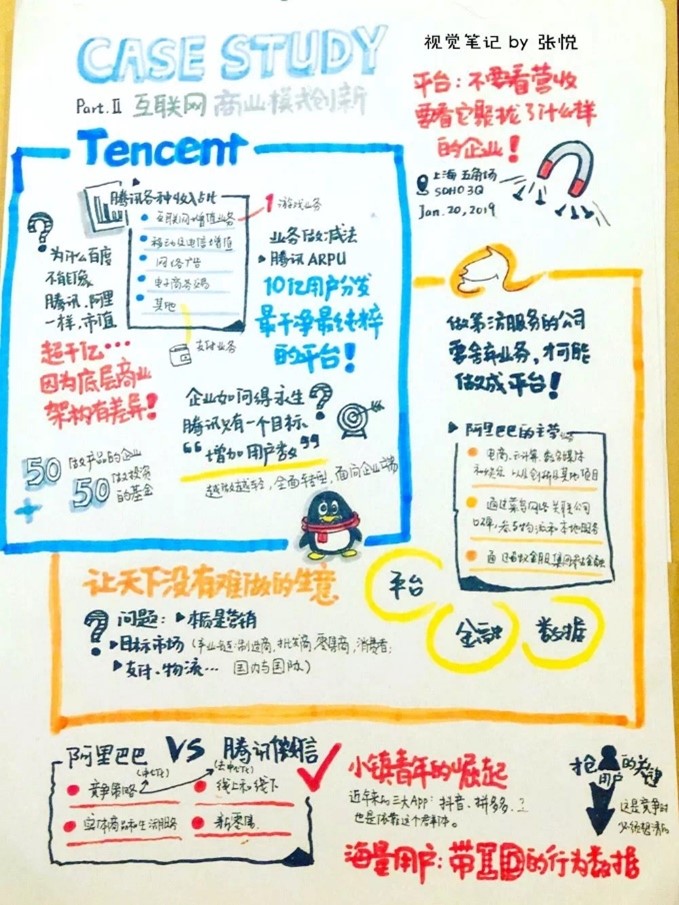 CASE STUDY
视觉笔记 by 张悦
Part.Ⅱ 互联网 商业模式创新
平台：不要看营收
要看它聚拢了什么样
的企业！
上海 五角场
SOHO 3Q
Jan.20,2019
Tencent
腾讯各种收入占比
互联网增值业务
1 游戏业务
移动及电信增值
网络广告
电子商务
其他
支付业务
为什么百度
不能像
腾讯、阿里
一样，市值
超千亿…
因为底层商业
架构有差异！
业务做减法
腾讯 ARPU
10亿用户分发
最干净最纯粹
的平台！
企业如何得永生？
腾讯只有一个目标
“增加用户数”
越做越轻，全面转型，面向企业端
50 做产品的企业
+ 50 做投资
的基金
做第三方服务的公司
要舍弃业务，才可能
做成平台！
阿里巴巴的主营
电商、云计算、数字媒体
和娱乐 以及创新及其他项目
通过菜鸟网络 关联公司
口碑，
平台
金融
数据
让天下没有难做的生意
？ 问题： 本质是营销
目标市场（产业链：制造商、批发商、零售商，消费者；
支付、物流… 国内与国际）
阿里巴巴 VS 腾讯微信
竞争策略
（中心化）
（去中心化）
线上和线下
实体商品和生活服务
新零售
小镇青年的崛起
近年来的三大App：抖音、拼多多、？
也是依靠这个老群体。
海量用户：带ID的行为数据
抢用户的关键
这是竞争时
必须想清的